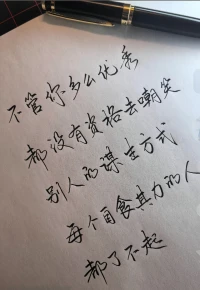 不管你多么优秀
都没有资格去嘲笑
别人的谋生方式
每个自食其力的人
都了不起